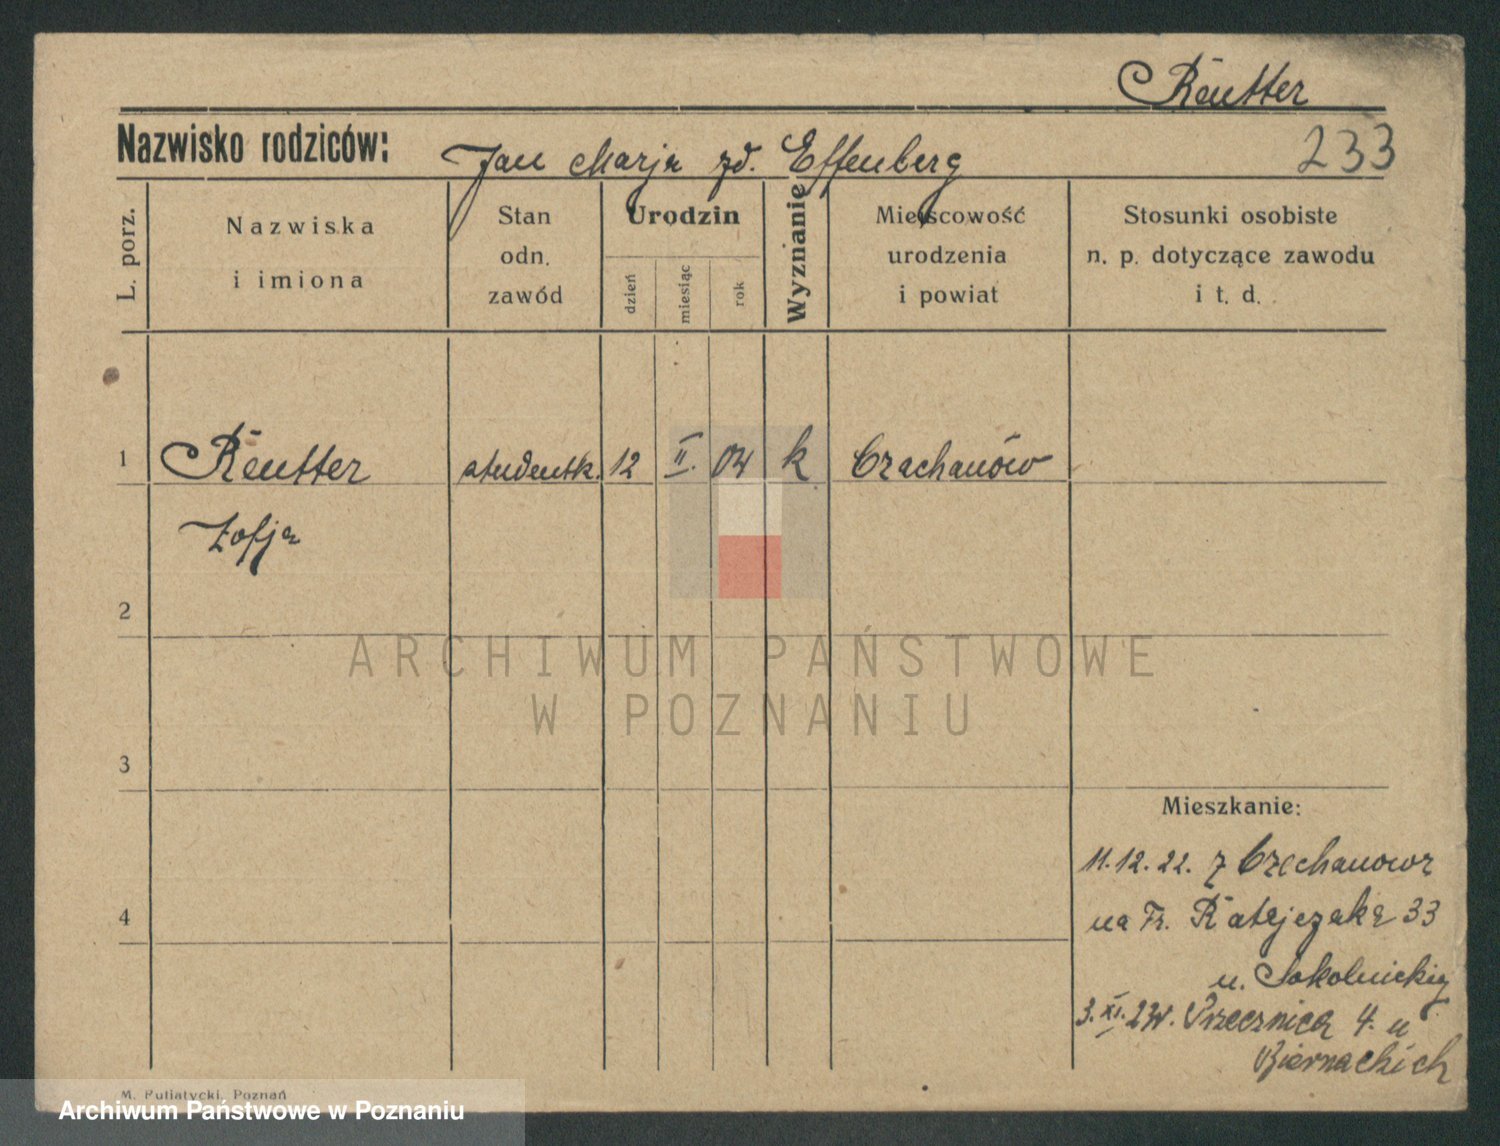 Reutter
Nazwisko rodziców: Jan Marja zd. Effenberg 233
L. porz.
Nazwiska
i imiona
Stan
odn.
zawód
Urodzin
dzień
miesiąc
rok
Wyznanie
Miejscowość
urodzenia
i powiat
Stosunki osobiste
n. p. dotyczące zawodu
i t. d.
1 Reutter studentk. 12 II. 04 k Crachanów
Zofja
2
3
4
Mieszkanie:
11.12.22. z Czechanowa
na Fr. Ratajczaka 33
u. Sokolnickiej
3.XI.23r. Przecznica 4. u
Biernackich
M. Putiatycki, Poznań
ARCHIWUM PAŃSTWOWE
W POZNANIU
Archiwum Państwowe w Poznaniu